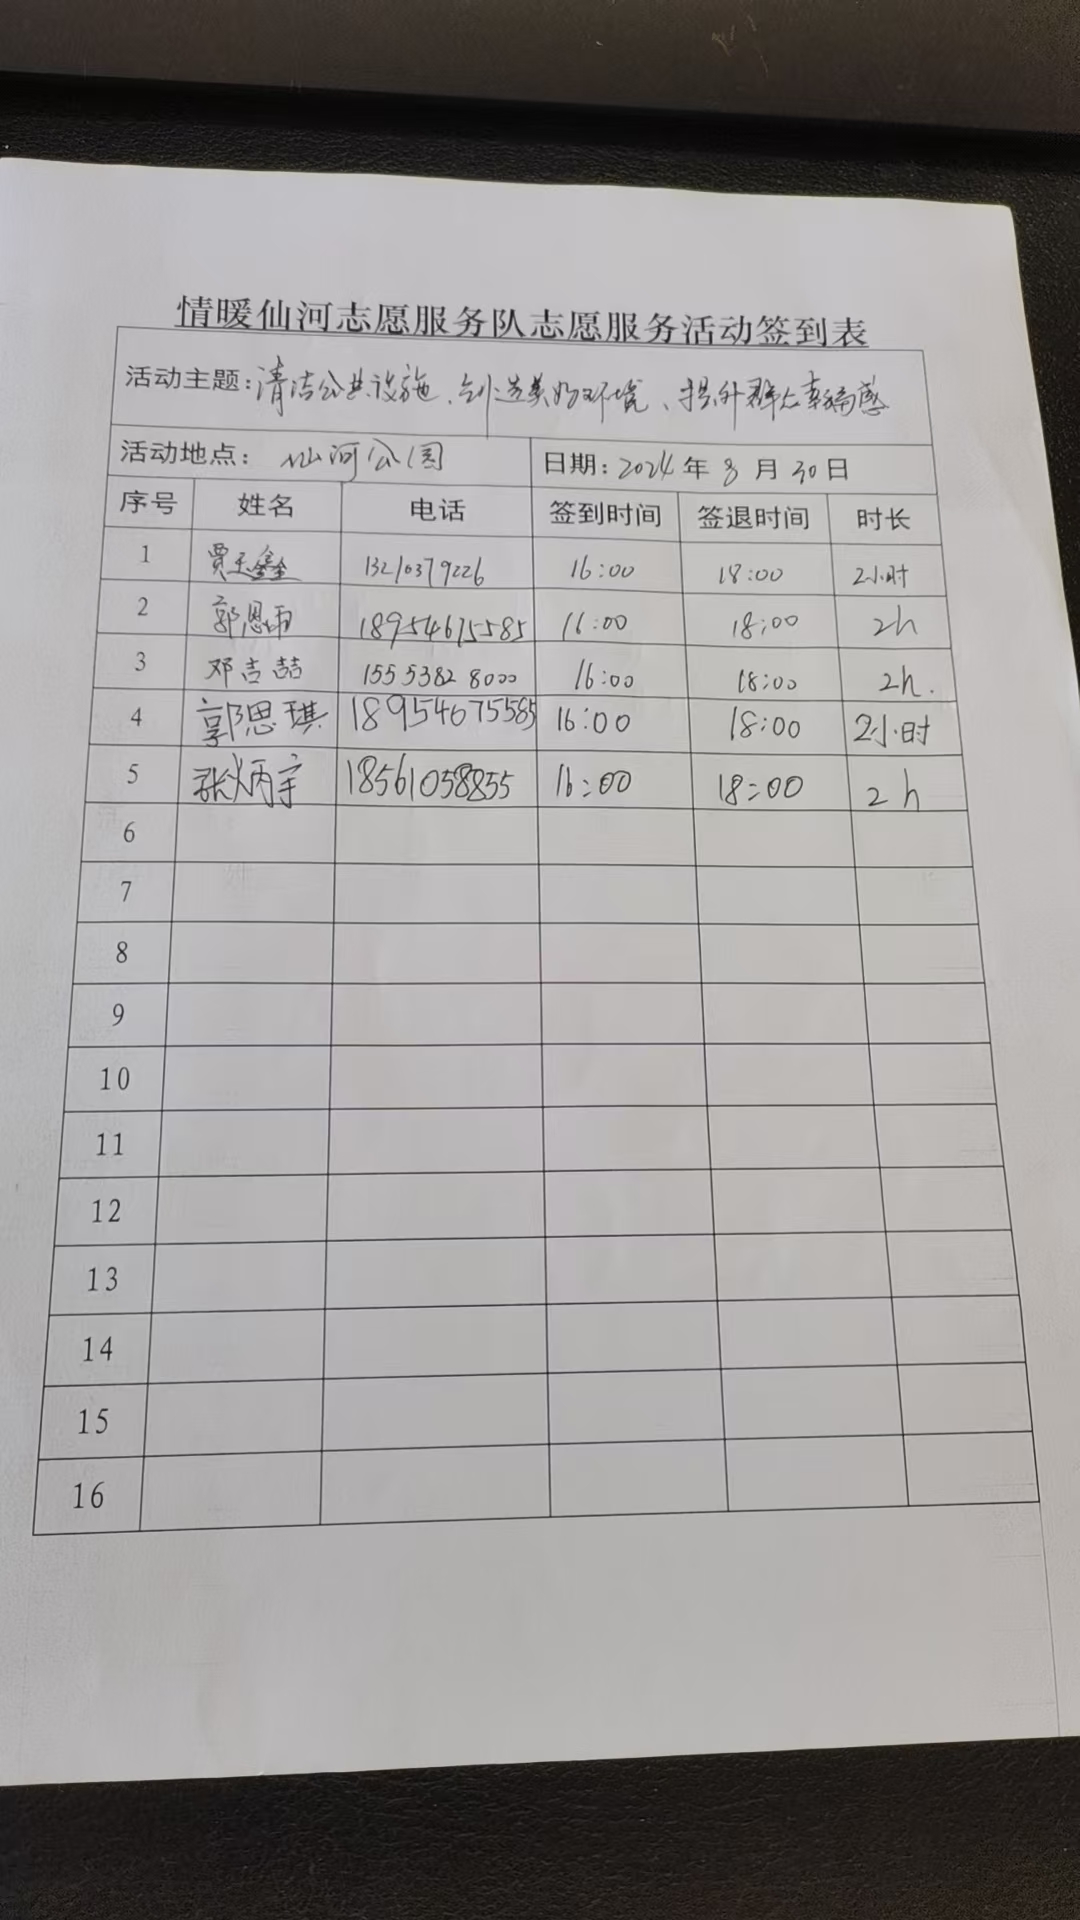 情暖仙河志愿服务队志愿服务活动签到表
活动主题：清洁公共设施、创造美好环境、提升群众幸福感
活动地点： 仙河公园 日期：2024年8月30日
序号 姓名 电话 签到时间 签退时间 时长
1 贾玉鑫 13210379226 16:00 18:00 2小时
2 郭恩雨 18954675585 16:00 18:00 2h
3 邓吉喆 15553828000 16:00 18:00 2h.
4 郭思琪 18954675585 16:00 18:00 2小时
5 张炳宇 18561058855 16:00 18:00 2h
6
7
8
9
10
11
12
13
14
15
16